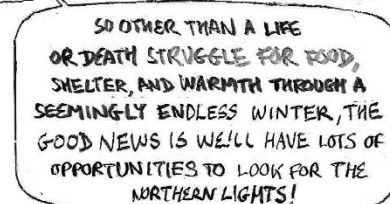 SO OTHER THAN A LIFE
OR DEATH STRUGGLE FOR FOOD,
SHELTER, AND WARMTH THROUGH A
SEEMINGLY ENDLESS WINTER, THE
GOOD NEWS IS WE'LL HAVE LOTS OF
OPPORTUNITIES TO LOOK FOR THE
NORTHERN LIGHTS!